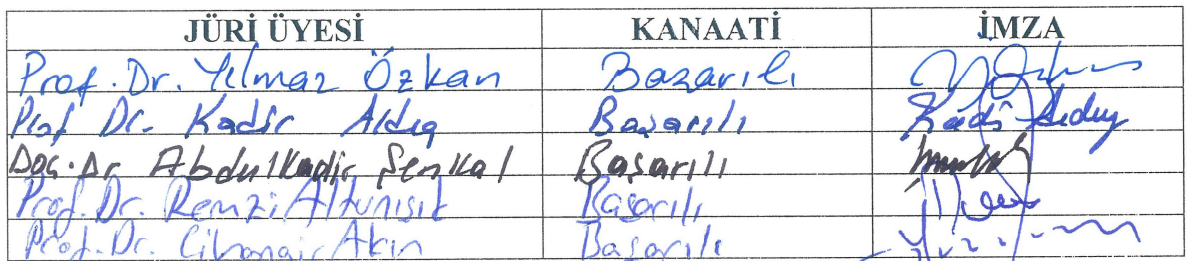 JÜRİ ÜYESİ KANAATİ İMZA
Prof. Dr. Yılmaz Özkan Başarılı
Prof Dr. Kadir Ardıç Başarılı
Doç. Dr. Abdulkadir Şenkal Başarılı
Prof. Dr. Remzi Altunışık Başarılı
Prof. Dr. Akın Başarılı